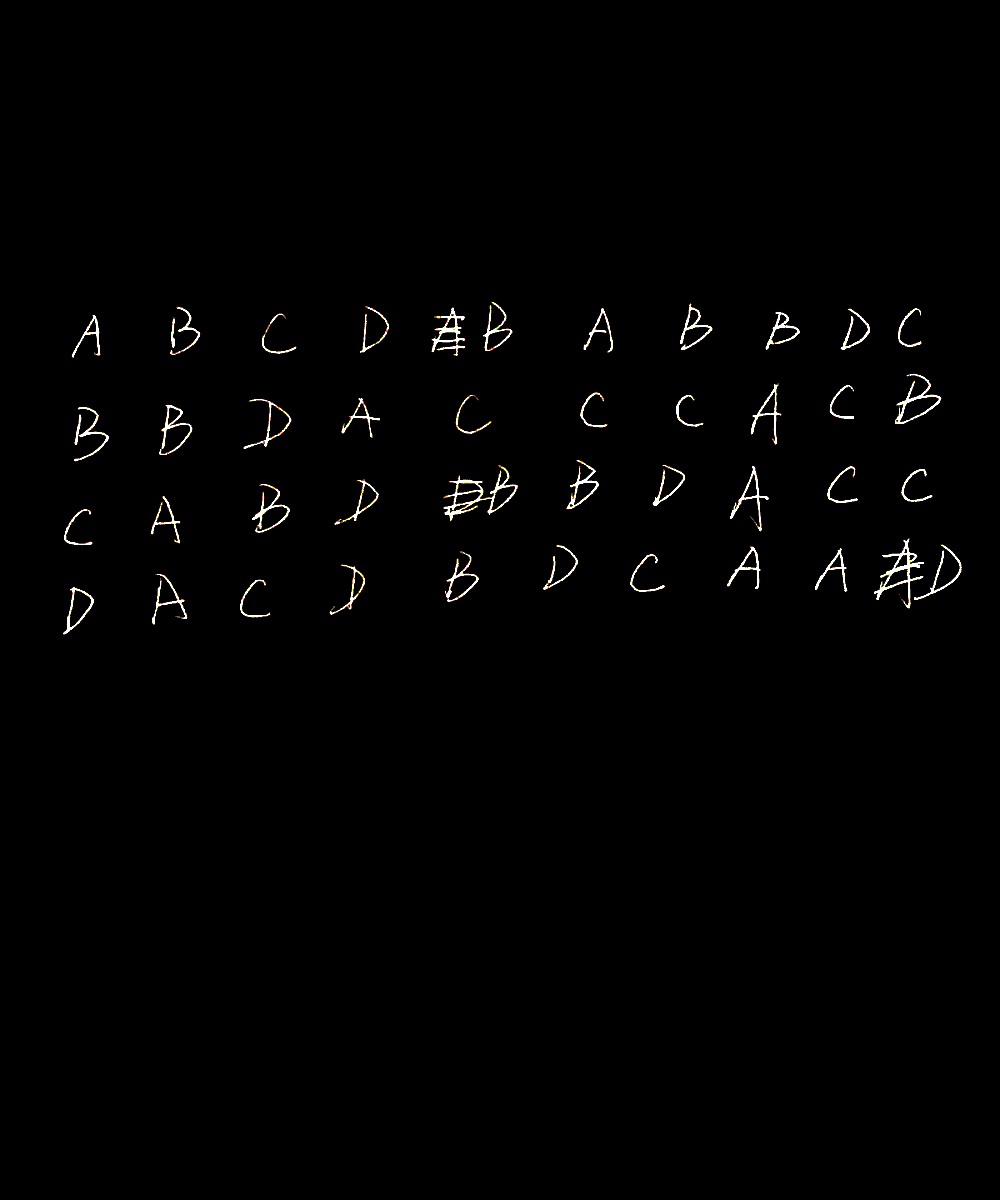 A B C D B A B B D C
B B D A C C C A C B
C A B D B B D A C C
D A C D B D C A A D